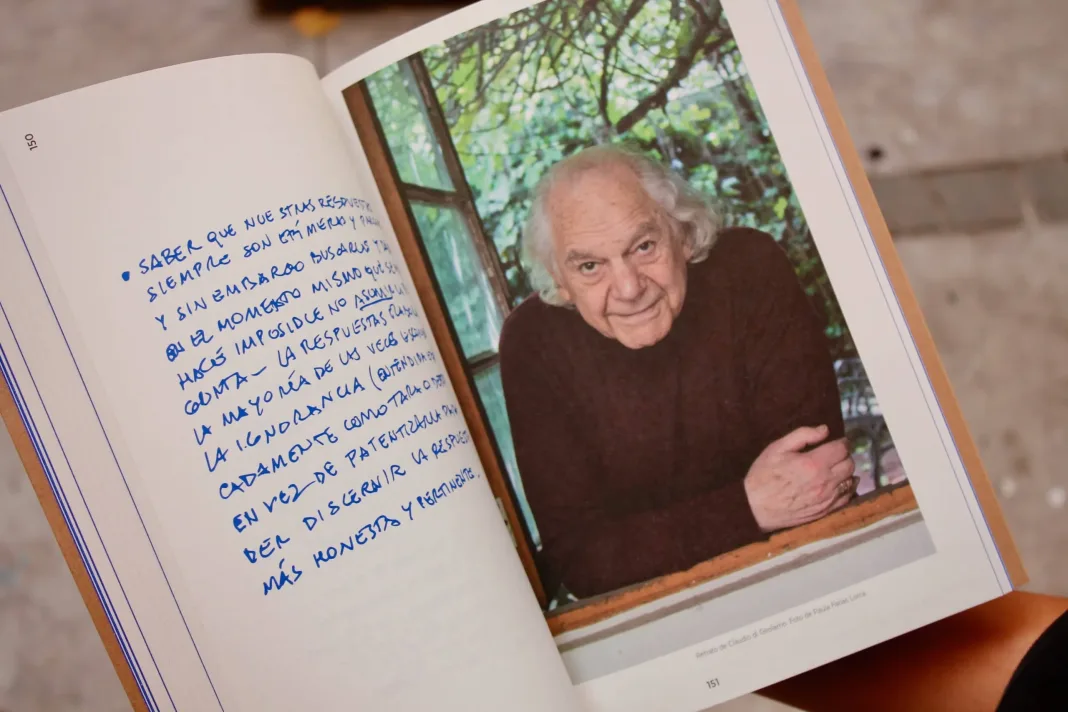 150
• SABER QUE NUESTRAS RESPUESTAS
SIEMPRE SON EFÍMERAS Y
Y SIN EMBARGO BUSCARLAS Y
EN EL MOMENTO MISMO QUE SE
HACE IMPOSIBLE NO ASUMIR LA
– LA RESPUESTAS
LA MAYORÍA DE LAS VECES
LA IGNORANCIA (ENTENDIDA
CADAMENTE COMO TARA O
EN VEZ DE PATENTIZARLA PARA
DER DISCERNIR LA RESPUESTA
MÁS HONESTA Y PERTINENTE.
Retrato de Claudio di Girolamo. Foto de Paula
151